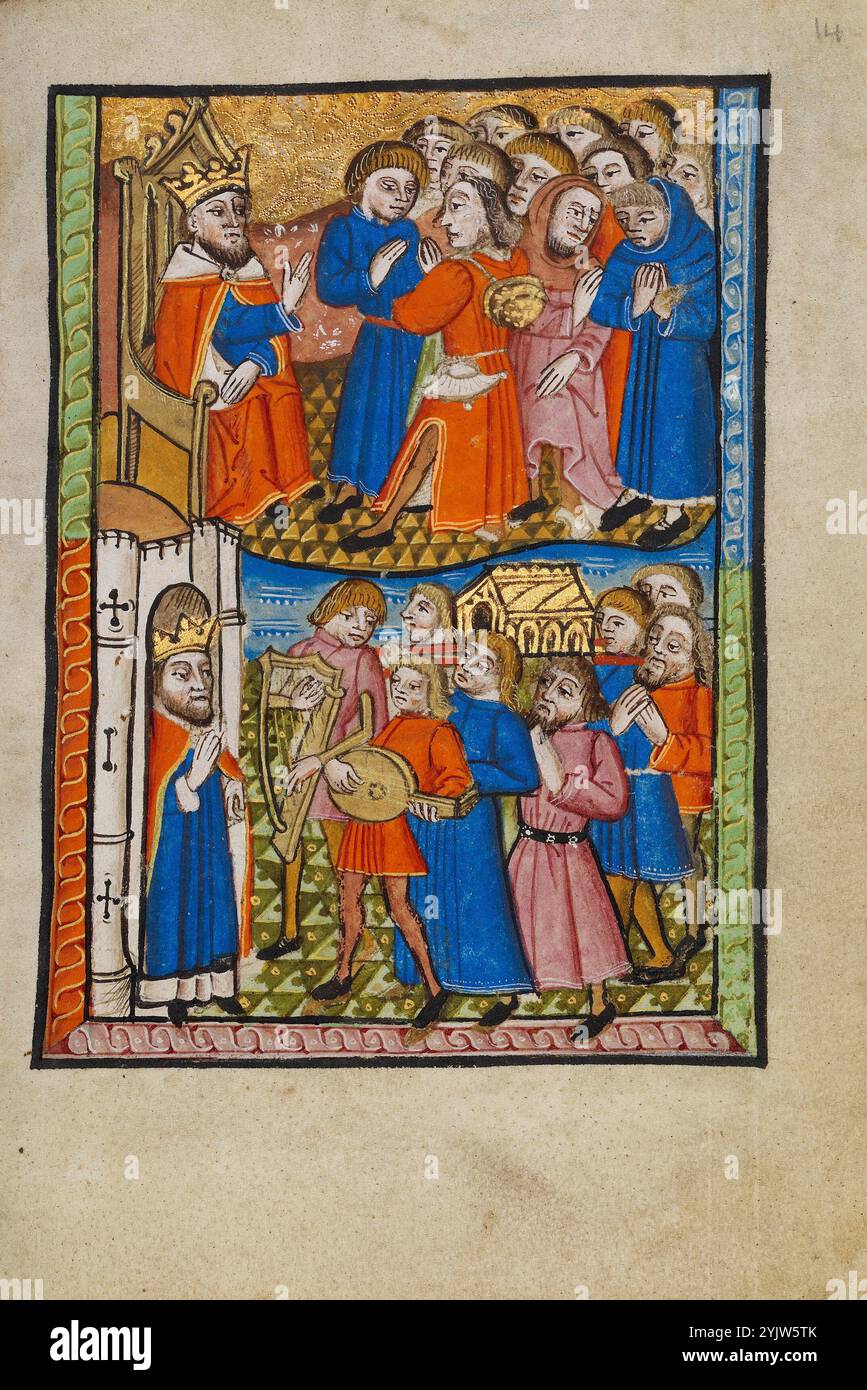 14
alamy
alamy
a
a
a
a
a
alamy
Image ID: 2YJW5TK
www.alamy.com